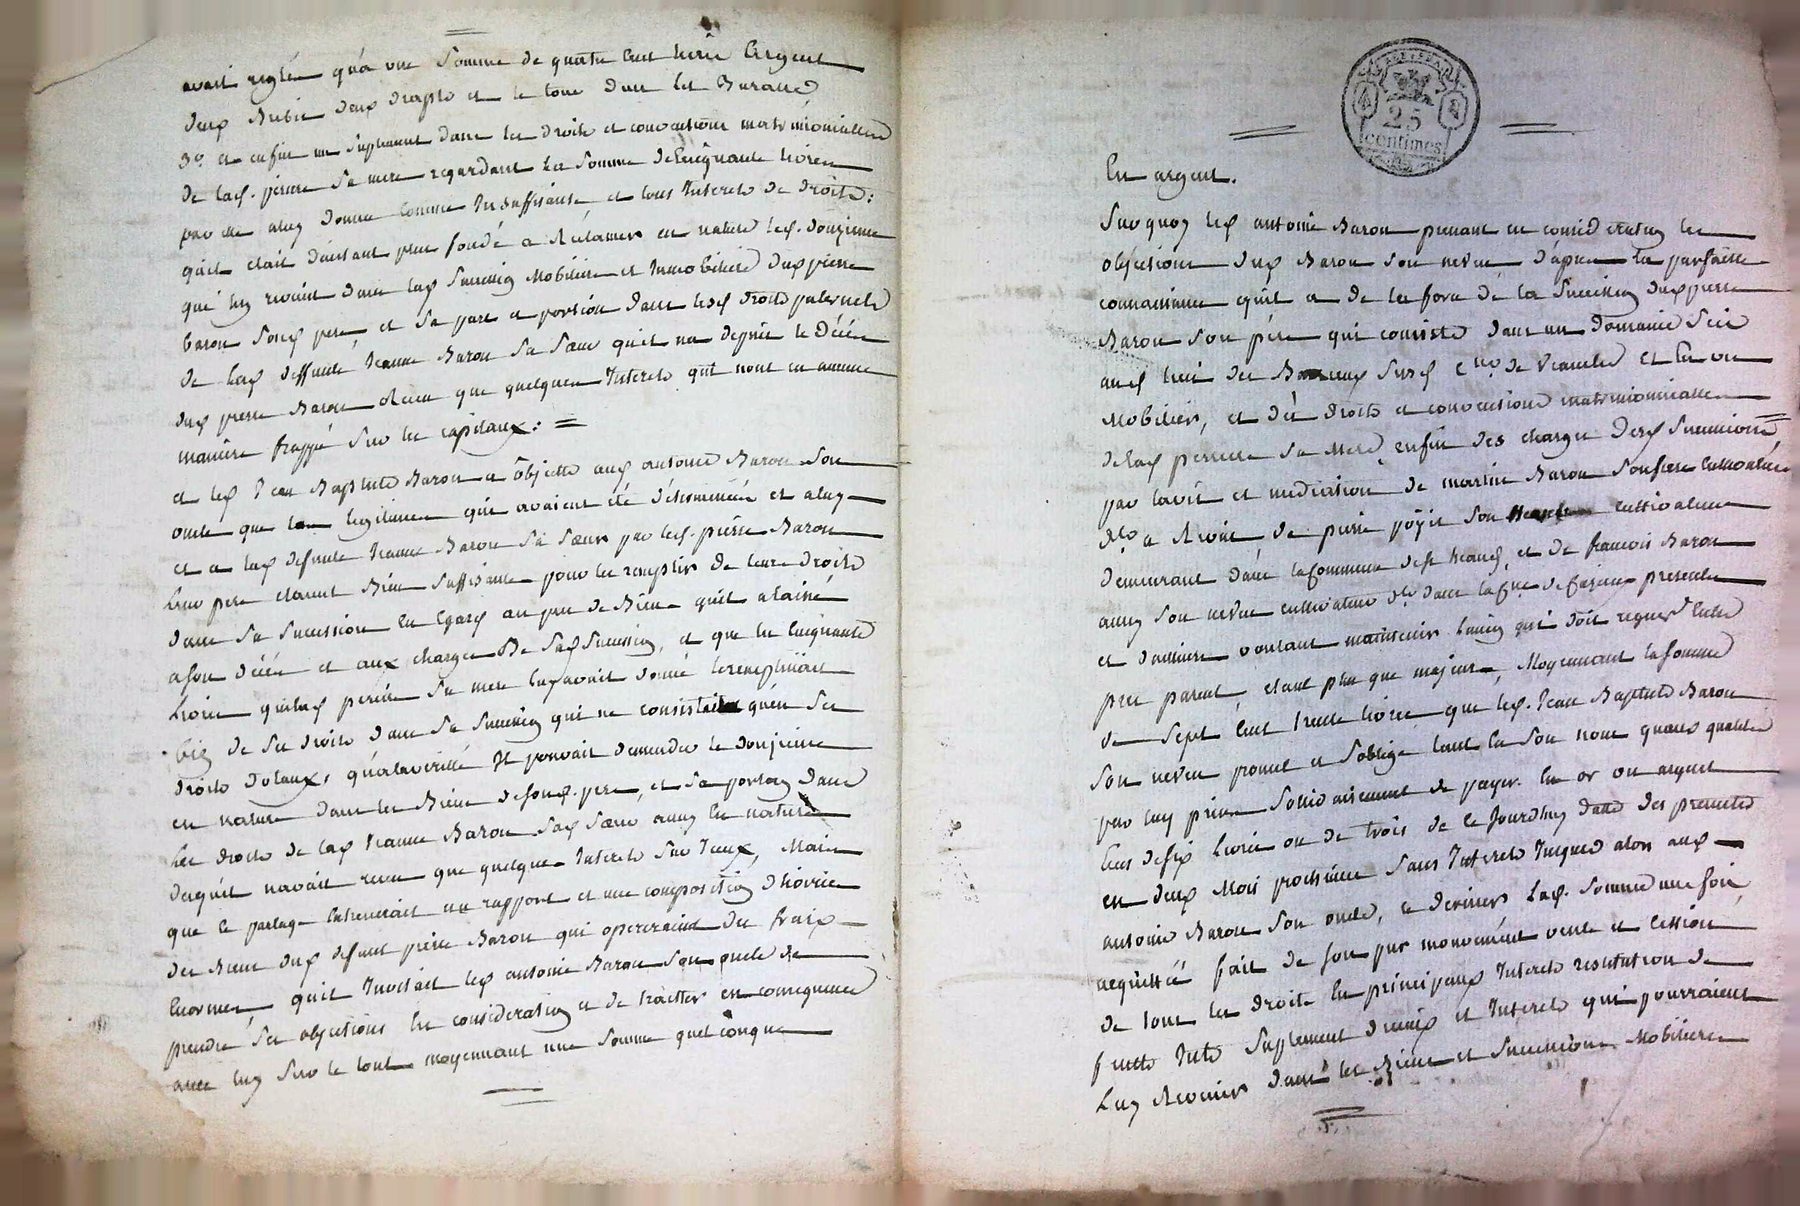 avait reglée qu'a une Somme de quatre cent livres Argent
deux Brebis deux draps et le tour d'un lit Buratte
3.° et enfin un suplement dans les droits et conventions matrimonialles
de lad. perine sa mere regardant la somme de Cinquante livres
par elle aluy donné comme Insuffisante et tous Interets de droits:
qu'il etait d'autant plus fondé a Réclamer en nature led. douzieme
qui luy revient dans lad. Succession Mobiliere et Immobiliere dud pierre
baron sond pere, et sa part et portion dans lesd droits paternels
de lad deffunte Jeanne Baron sa sœur qu'il na depuis le Décés
dud pierre Baron Recu que quelques Interets qui n'ont en aucune
maniere frappé sur les capitaux: =
et led Jean Baptiste Baron a objecté aud antoine Baron son
oncle que les legitimes qui avaient été déterminées et aluy
et a lad defunte Jeanne Baron sa sœur par led. pierre Baron
leur pere etaient Bien suffisantes pour les remplir de leurs droits
dans sa sucession En Egard au peu de Biens qu'il a laissé
a son décés et aux charges De sad Succession, et que les Cinquante
livres que lad perine sa mere luy avait donné
de ses droits dans sa succession qui ne consistait qu'en ses
droits dotaux, qu'alaverité Il pouvait demander le douzieme
en nature dans les Biens de sond. pere, et sa portion dans
les droits de lad Jeanne Baron sad sœur aussy en nature
desquels n'avait recu que quelques Interets sur Iceux, Mais
que le partage Entrenerait un rapport et une composition d'hoirie
des Biens dud defunt pierre Baron qui opereraient des fraix
Enormes qu'il Invitait led antoine Baron son oncle de
prendre ses objections En consideration et de traitter en consequence
avec luy sur le tout moyennant une somme quelconque
25
centimes
En argent.
Surquoy led antoine Baron prenant en consideration les
objections dud Baron son neveu d'après la parfaitte
connaissance qu'il a de les forces de la Succession dud pierre
Baron son père qui consiste dans un domaine Scis
aud lieu des susd Cne. de et En un
Mobilier, et dès droits et conventions matrimonialles
delad perine sa Mere enfin des charges desd Successions
par l'avis et mediation de martin Baron son frere cultivateur
de pierre son cultivateur
demeurant dans la Commune de st et de francois Baron
aussy son neveu cultivateur dt. dans la Cne. de presents
et d'ailleurs voulant maintenir l'union qui doit regner Entre
pres parents, etant plus que majeur, Moyennant la somme
de sept cent trente livres que led. Jean Baptiste Baron
son neveu promet et s'oblige tant En son nom quaux qualités
par luy prises solidairement de payer En or ou argent
Ecus de six livres ou de trois de ce Jourdhuy datte des presentes
en deux Mois prochains sans Interets Jusques alors aud
antoine Baron son oncle, ce dernier lad. somme une fois
acquittée fait de son pur mouvement vente et cession
de tous les droits En principaux Interets restitution de
fruits Suplement d'iceux et Interets qui pourraient
luy Revenir dans les Biens et successions Mobilieres